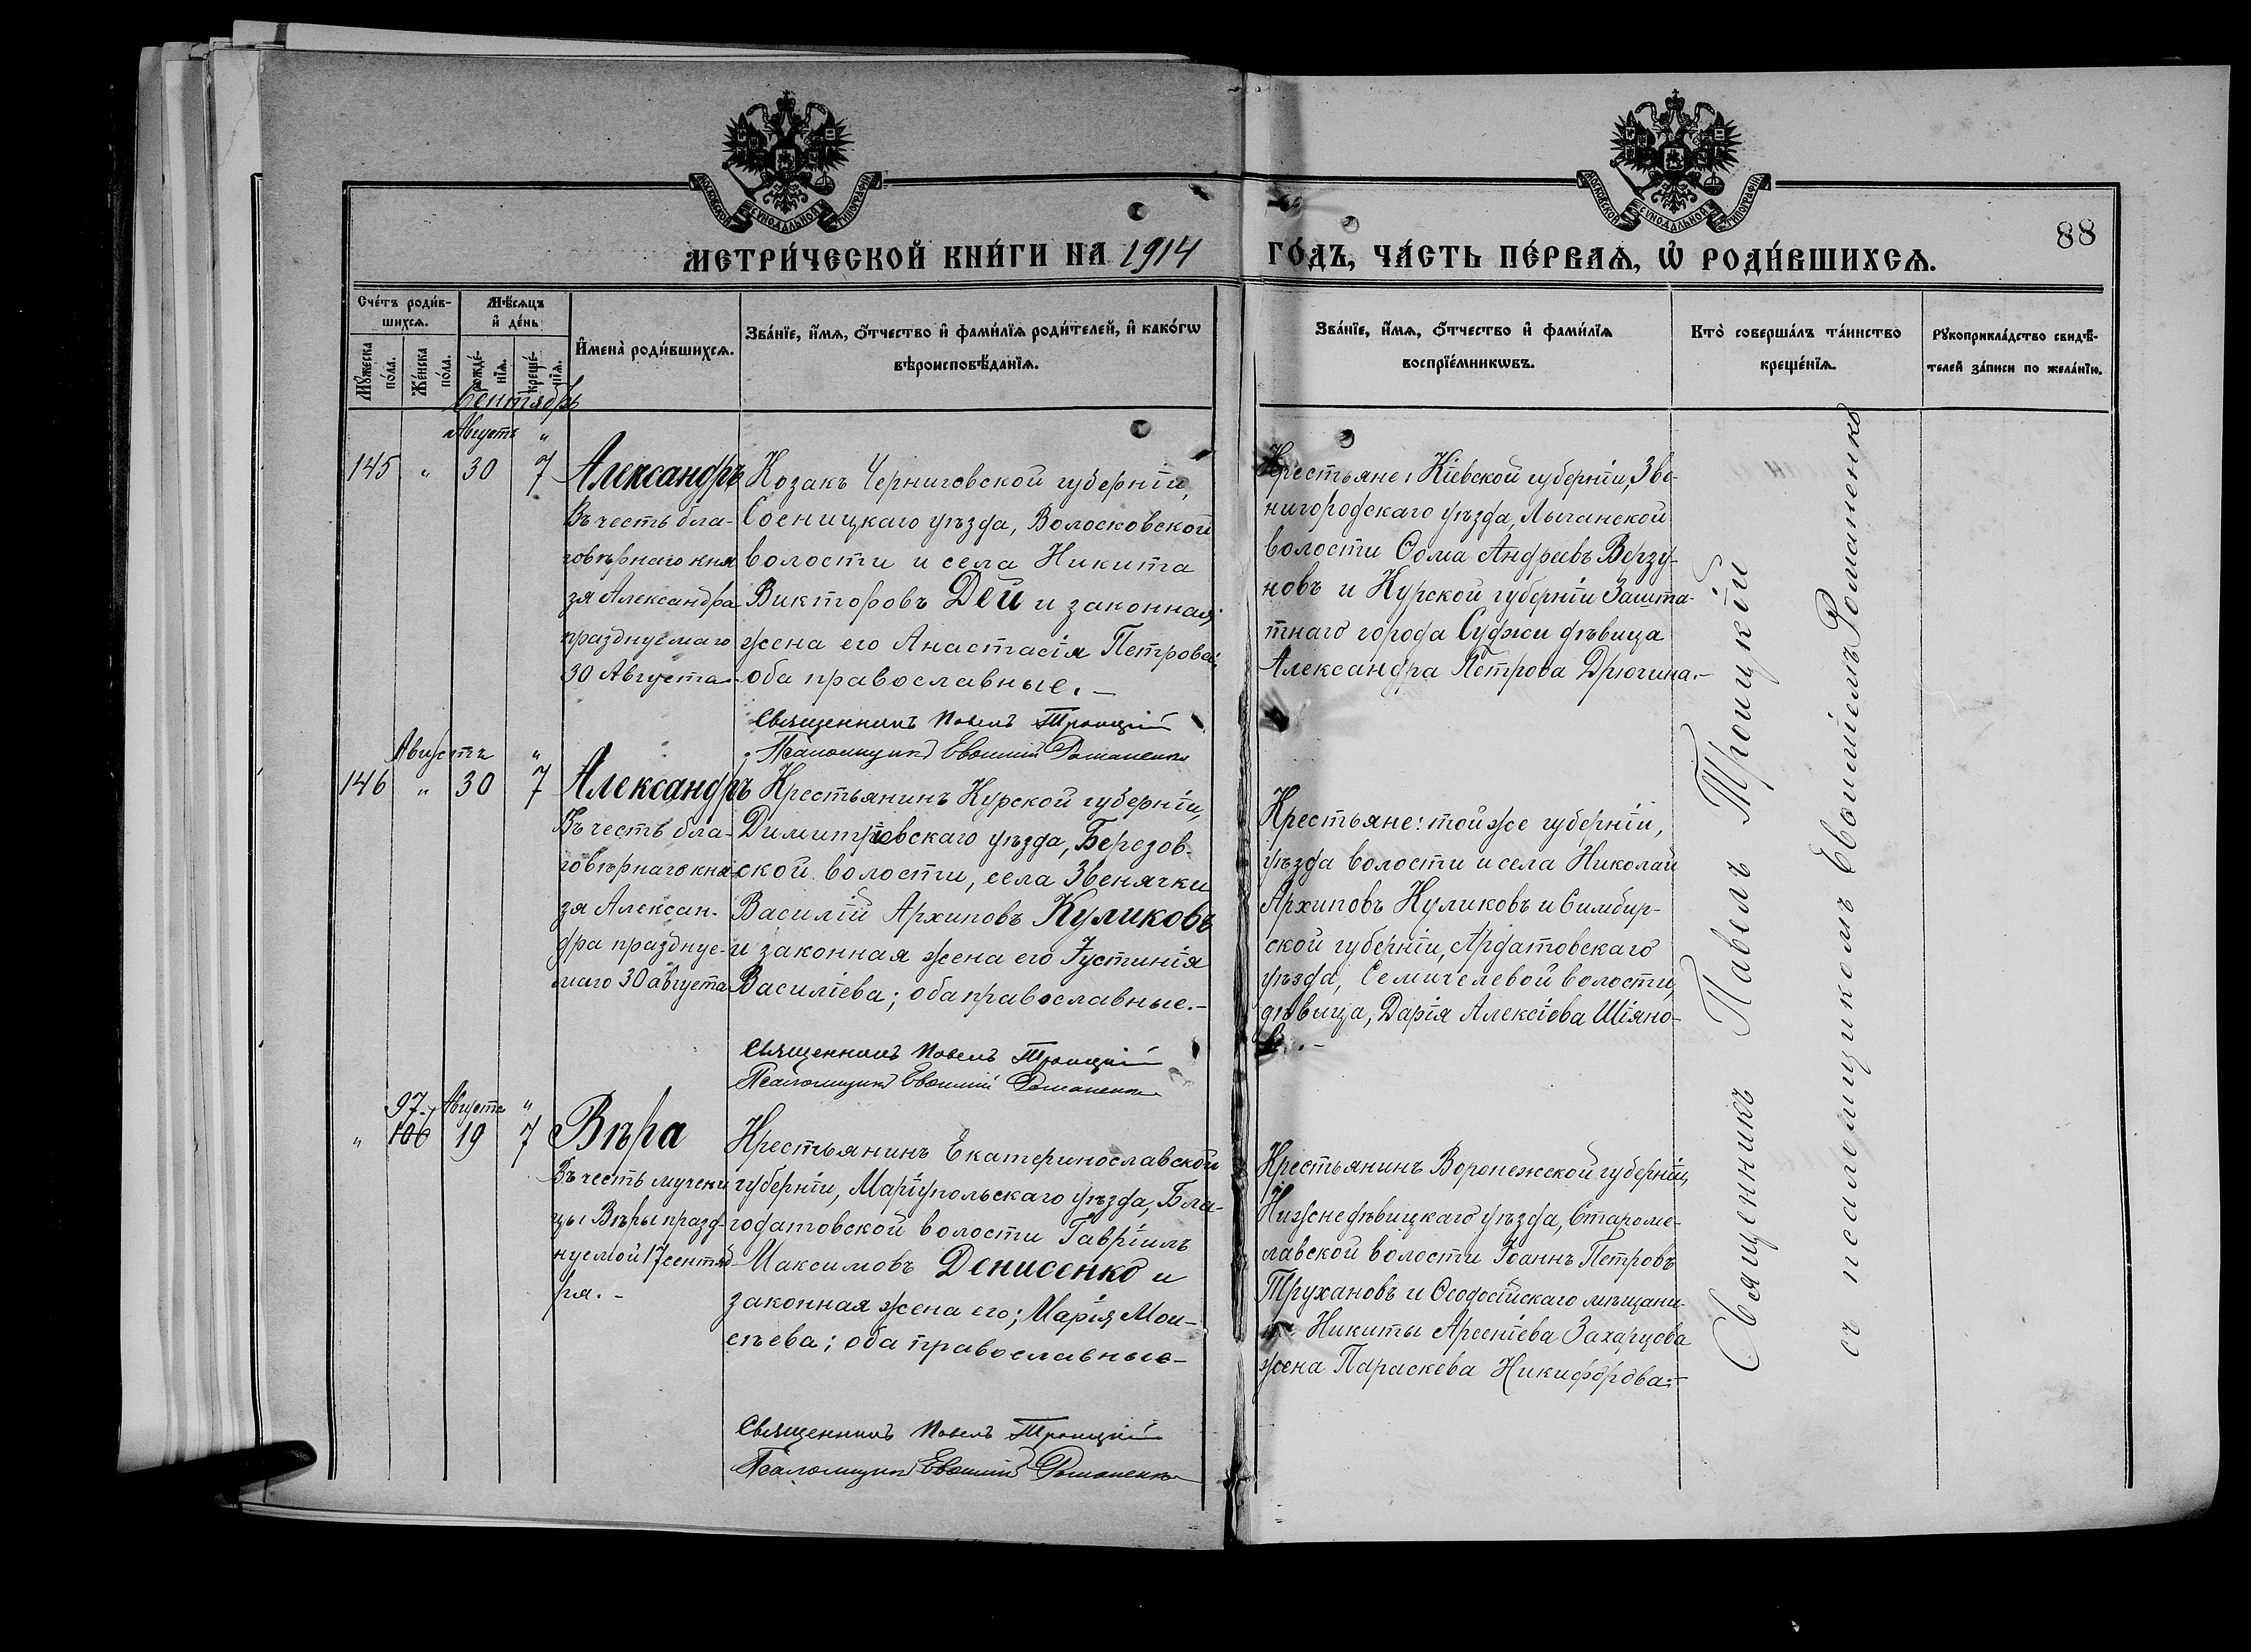 МОСКОВСКОЙ СѴНОДАЛЬНОЙ ТИПОГРАФІИ
МОСКОВСКОЙ СѴНОДАЛЬНОЙ ТИПОГРАФІИ
88
МЕТРИ́ЧЕСКОЙ КНИ́ГИ НА 1914 ГО́ДЪ, ЧА́СТЬ ПЕ́РВАѦ, Ѡ҆ РОДИ́ВШИХСѦ.
Сче́тъ роди́в-
шихсѧ.
Мѣ́сѧцъ
и҆ де́нь
Мꙋ́жеска по́ла.
Же́нска по́ла.
рожде́-
нїѧ.
креще́-
нїѧ.
И҆мена̀ роди́вшихсѧ.
Зва́нїе, и҆́мѧ, ѻ҆́тчество и҆ фами́лїѧ роди́телей, и҆ како́гѡ
вѣроисповѣ́данїѧ.
Зва́нїе, и҆́мѧ, ѻ҆́тчество и҆ фами́лїѧ
воспрїе́мникѡвъ.
Кто̀ соверша́лъ та́инство
креще́нїѧ.
Рꙋкоприкла́дство свидѣ́-
телей за́писи по жела́нїю.
Сентябрь
Августъ "
145 " 30 7
Александръ
Въ честь бла-
говѣрнаго кня
зя Александра
празднуемаго
30 Августа.
Козакъ Черниговской губерніи,
Сосницкаго уѣзда, Волосковской
волости и села Никита
Викторовъ Дей и законная
жена его Анастасія Петрова;
оба православные.-
Священникъ Павелъ Троицкій
Псаломщикъ Евѳимій Романенко
Крестьяне: Кіевской губерніи, Зве-
нигородскаго уѣзда, Лысянской
волости Ѳома Андреевъ Верзу-
новъ и Курской губерніи Зашта-
тнаго города Суджи дѣвица
Александра Петрова Дрюгина.-
Августъ "
146 " 30 7
Александръ
Въ честь бла-
говѣрнаго кня-
зя Алексан-
дра празднуе-
маго 30 августа
Крестьянинъ Курской губерніи,
Димитріевскаго уѣзда, Березов-
ской волости, села Звенячки
Василій Архиповъ Куликовъ
и законная жена его Іустинія
Василіева; оба православные.-
Священникъ Павелъ Троицкій
Псаломщикъ Евѳимій Романенко
Крестьяне: той же губерніи,
уѣзда волости и села Николай
Архиповъ Куликовъ и Симбир-
ской губерніи, Ардатовскаго
уѣзда, волости,
дѣвица, Дарія Алексіева Шіяно-
97. Августъ "
" 106 19 7
Вѣра
Въ честь мучени
цы Вѣры празд-
нуемой 17 сентяб
ря.-
Крестьянинъ Екатеринославской
губерніи, Маріупольскаго уѣзда, Бла-
годатовской волости Гавріилъ
Максимовъ Денисенко и
законная жена его; Марія Мои-
сѣева; оба православные-
Священникъ Павелъ Троицкій
Псаломщикъ Евѳимій Романенко
Крестьянинъ Воронежской губерніи,
Нижнедѣвицкаго уѣзда,
волости Іоаннъ Петровъ
Трухановъ и Ѳеодосійскаго мѣщани-
Никиты Арсеніева Захарцова
жена Параскева Никифорова.-
Священникъ Павелъ Троицкій
съ псаломщикомъ Евѳиміемъ Романенко